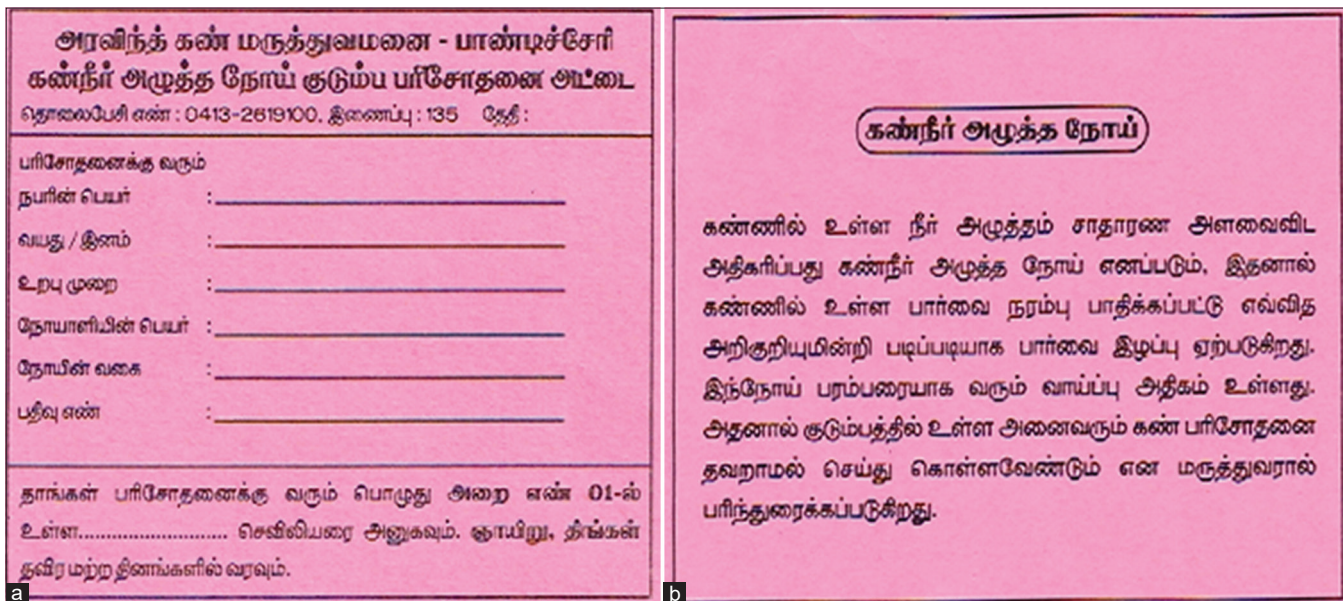 அரவிந்த் கண் மருத்துவமனை - பாண்டிச்சேரி
கண்நீர் அழுத்த நோய் குடும்ப பரிசோதனை அட்டை
தொலைபேசி எண் : 0413-2619100, இணைப்பு : 135 தேதி :
பரிசோதனைக்கு வரும்
நபரின் பெயர் :
வயது / இனம் :
உறபு முறை :
நோயாளியின் பெயர் :
நோயின் வகை :
பதிவு எண் :
தாங்கள் பரிசோதனைக்கு வரும் பொழுது அறை எண் 01-ல்
உள்ள........................... செவிலியரை அனுகவும். ஞாயிறு, திங்கள்
தவிர மற்ற தினங்களில் வரவும்.
a
கண்நீர் அழுத்த நோய்
கண்ணில் உள்ள நீர் அழுத்தம் சாதாரண அளவைவிட
அதிகரிப்பது கண்நீர் அழுத்த நோய் எனப்படும், இதனால்
கண்ணில் உள்ள பார்வை நரம்பு பாதிக்கப்பட்டு எவ்வித
அறிகுறியுமின்றி படிப்படியாக பார்வை இழப்பு ஏற்படுகிறது.
இந்நோய் பரம்பரையாக வரும் வாய்ப்பு அதிகம் உள்ளது.
அதனால் குடும்பத்தில் உள்ள அனைவரும் கண் பரிசோதனை
தவறாமல் செய்து கொள்ளவேண்டும் என மருத்துவரால்
பரிந்துரைக்கப்படுகிறது.
b